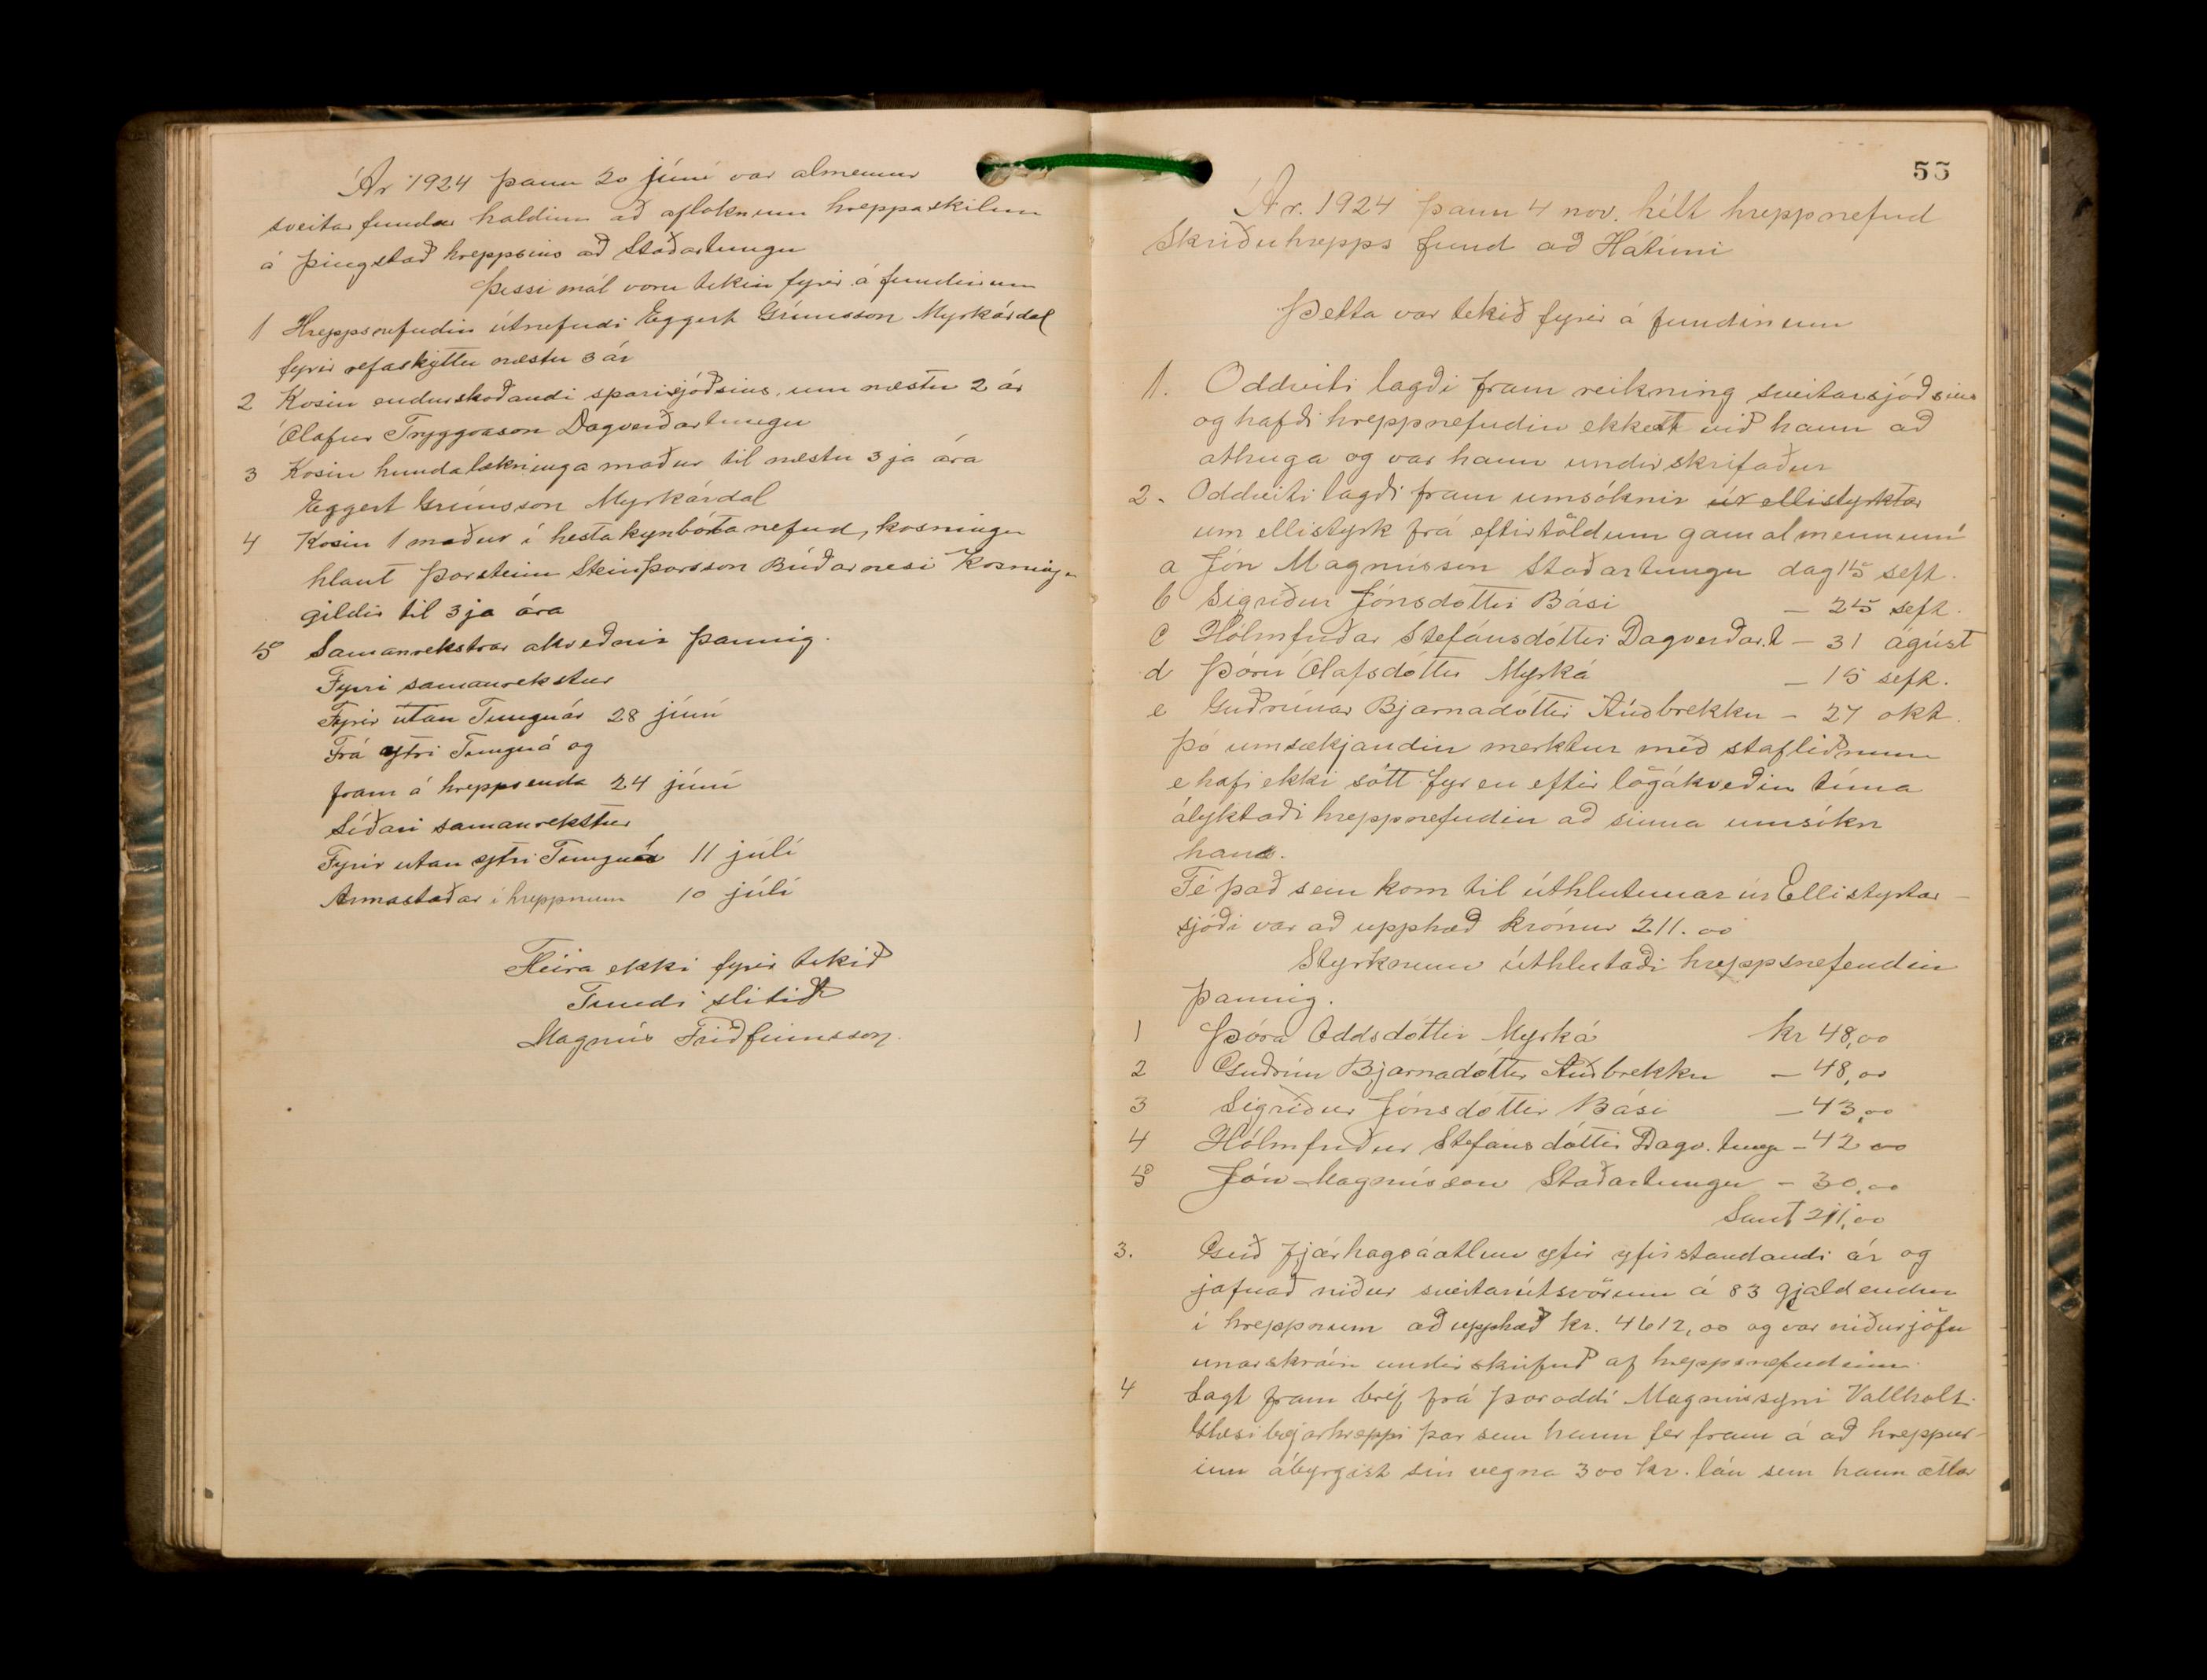 Ár 1924 þann 20 júní var almennur
sveitarfundur haldinn að afloknum hreppaskilum
á þingstað hreppsins að Staðartungu
Þessi mál voru tekin fyrir á fundinum
1 Hreppsnefndin útnefndi Eggert Grímsson Myrkárdal
fyrir refaskyttu næstu 3 ár
2 Kosin endurskoðandi sparisjóðsins, um næstu 2 ár
Ólafur Tryggvason Dagverðartungu
3 Kosin hundalækninga maður til næstu 3ja ára
Eggert Grímsson Myrkárdal
4 Kosin 1 maður í hestakynbótanefnd, kosningu
hlaut Þorsteinn Steinþorsson Búðarnesi Kosningu
gildir til 3ja ára
5 Samanrekstrar akveðnir þannig.
Fyrri samanrekstur
Fyrir utan Tunguár 28 júní
Frá ytri Tunguá og
fram á hreppsenda 24 júní
Síðari samanrekstur
Fyrir utan ytri Tunguá 11 júlí
Annastaðar í hreppnum 10 júlí
Fleira ekki fyrir tekið
Fundi slitið
Magnús Friðfinnsson.
55
Ár. 1924 þann 4 nov. hélt hreppnefnd
Skriðuhrepps fund að Hátúni
Þetta var tekið fyrir á fundinum
1. Oddviti lagði fram reikning sveitarsjóðsins
og hafði hreppnefndin ekkert við hann að
athuga og var hann undirskrifaður
2. Oddviti lagði fram umsóknir úr ellistyrktar
um ellistyrk frá eftirtöldum gamalmennum
a Jón Magnússon Staðartungu dag 15 seft.
b Sigríður Jónsdóttir Bási – 25 seft.
c Hólmfríðar Stefánsdóttir Dagverðar.t – 31 ágúst
d Þóru Ólafsdóttir Myrká – 15 seft.
e Guðrúnar Bjarnadóttir Auðbrekku – 27 okt.
Þó umsækjandin merktur með stafliðnum
e hafi ekki sótt fyr en eftir lögákveðin tíma
ályktaði hreppnefndin að sinna umsókn
hans.
Fé það sem kom til úthlutunar úr Ellistyrtar-
sjóði var að upphæð krónur 211.00
Styrknum úthlutaði hreppsnefndin
þannig.
1 Þóra Oddsdóttir Myrká kr 48,00
2 Guðrún Bjarnadóttir Auðbrekku – 48,00
3 Sigríður Jónsdóttir Bási – 43,00
4 Hólmfríður Stefansdóttir Dagv.tungu – 42 00
5 Jón Magnússon Staðartungu – 30,00
Samt 211,00
3. Gerð fjárhagsáætlun yfir yfirstandandi ár og
jafnað niður sveitarútsvörum á 83 gjaldendur
í hreppnum að upphæð kr. 4612,00 og var niðurjöfn
unarskráin undirskrifuð af hreppsnefndinni.
4 Lagt fram bréf frá Þoroddi Magnússyni Vallholt.
Glæsibæjarhreppi þar sem hann fer fram á að hreppur-
inn ábyrgist sín vegna 300 kr. lán sem hann ætlar